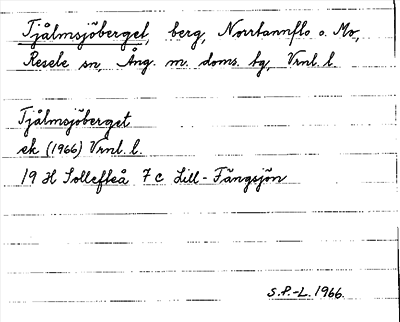 Tjålmsjöberget, berg, Norrtannflo o. Mo,
Resele sn, Ång. m. doms. bg, Vrnl. l.
Tjålmsjöberget
ek (1966) Vrnl. l.
19 H Sollefteå 7 c Lill-Tängsjön
S.P.-L. 1966.